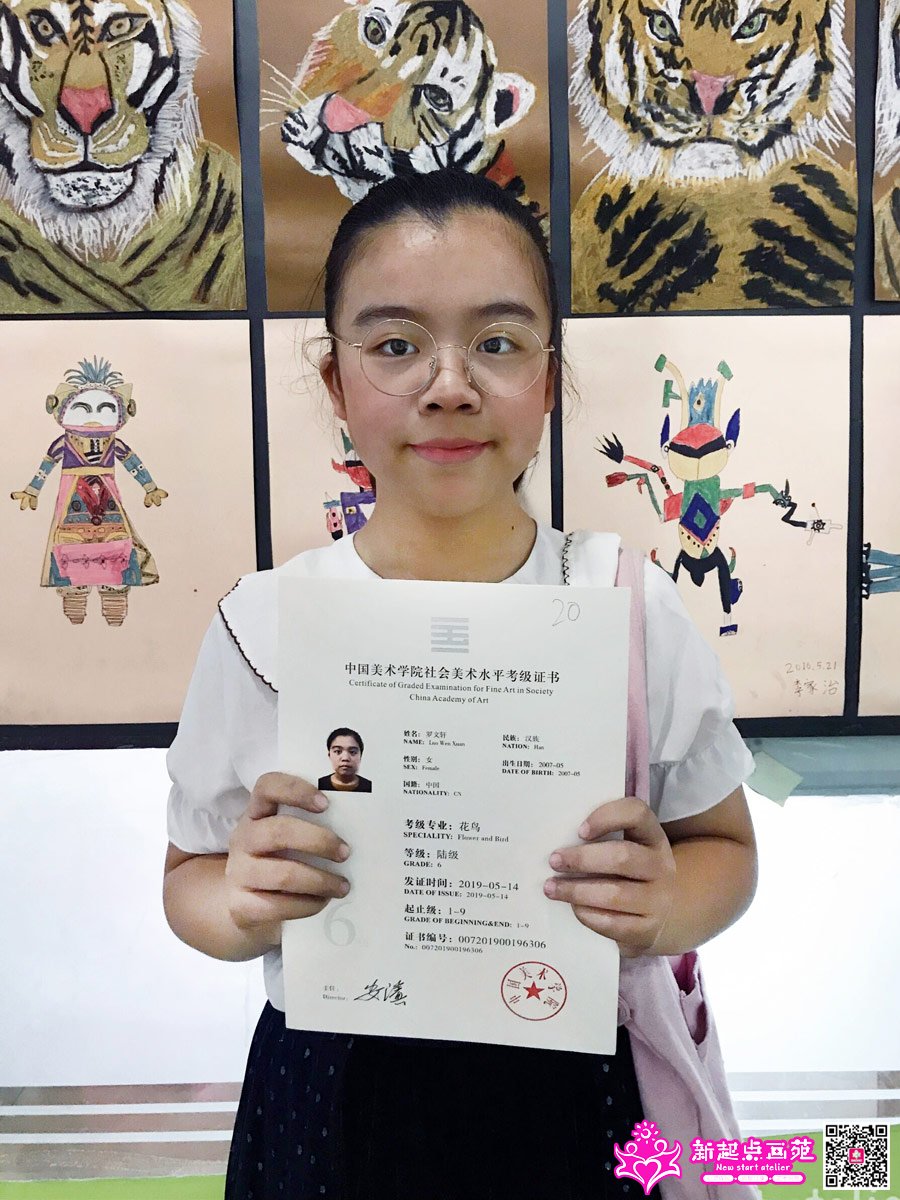 20
中国美术学院社会美术水平考级证书
Certificate of Graded Examination for Fine Art in Society
China Academy of Art
姓名：罗文轩 民族：汉族
NAME: Luo Wen Xuan NATION: Han
性别：女 出生日期：2007-05
SEX: Female DATE OF BIRTH: 2007-05
国籍：中国
NATIONALITY: CN
考级专业：花鸟
SPECIALITY: Flower and Bird
等级：陆级
GRADE: 6
发证时间：2019-05-14
DATE OF ISSUE: 2019-05-14
起止级：1-9
GRADE OF BEGINNING&END: 1-9
证书编号：007201900196306
No.: 007201900196306
6
主任：
Director:
中国美术学院
2016.5.21
李家治
新起点画苑
New start atelier